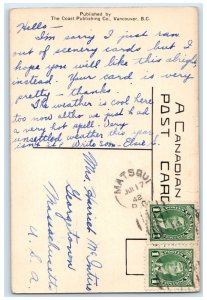 Published by
The Coast Publishing Co., Vancouver, B.C.
Hello —
I'm sorry I just ran
out of scenery cards but I
hope you will like this alright
instead. Your card is very
pretty - thanks.
The weather is cool here
too now altho we just had
a very hot spell. Very
unsettled weather this year
isn't it? Write soon -
Mrs Harriet McIntire
Georgetown
Massachusetts
U.S.A.
A CANADIAN
POST CARD
MATSQUI
JUL 17
42
B.C.
1 1
1 1